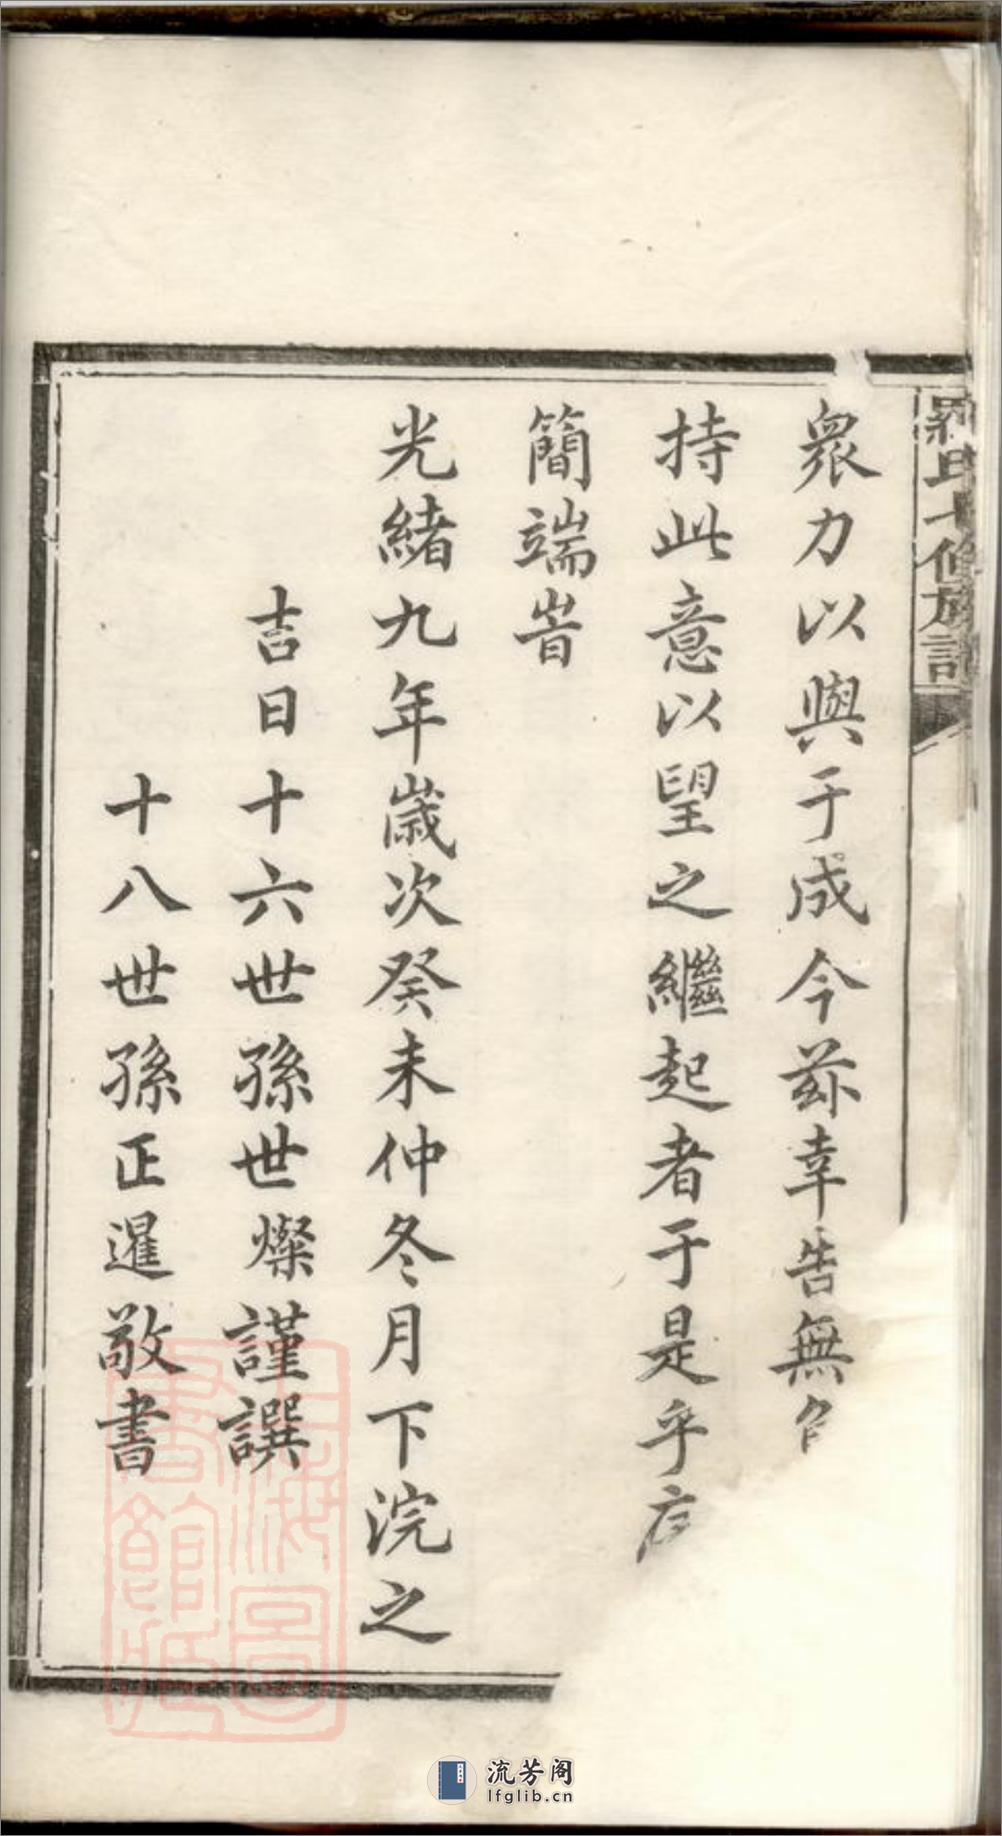 羅氏七修族譜
眾力以與于成今茲幸告無
持此意以望之繼起者于是乎
簡端旹
光緒九年歲次癸未仲冬月下浣之
吉日十六世孫世燦謹譔
十八世孫正暹敬書
上海圖書館藏
流芳阁
lfglib.cn